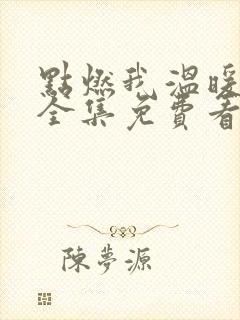 點燃我溫暖
全集免費看
陳夢源